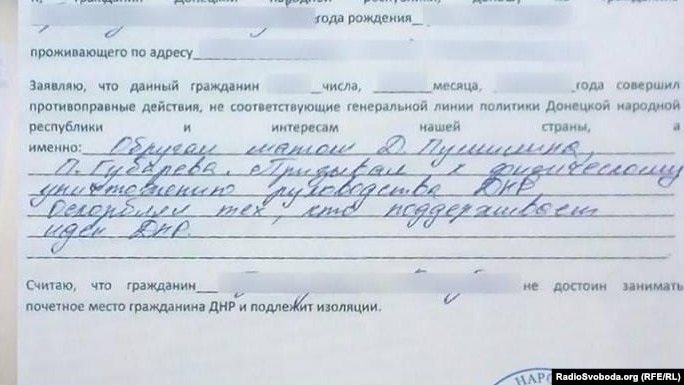 года рождения
проживающего по адресу
Заявляю, что данный гражданин числа, месяца, года совершил
противоправные действия, не соответствующие генеральной линии политики Донецкой народной
республики и интересам нашей страны, а
именно: Обругал матом Д. Пушилина,
П. Губарева. Призывал к физическому
уничтожению руководства ДНР
Оскорблял тех, кто поддерживает
идеи ДНР.
Считаю, что гражданин не достоин занимать
почетное место гражданина ДНР и подлежит изоляции.
НАРО
RadioSvoboda.org (RFE/RL)